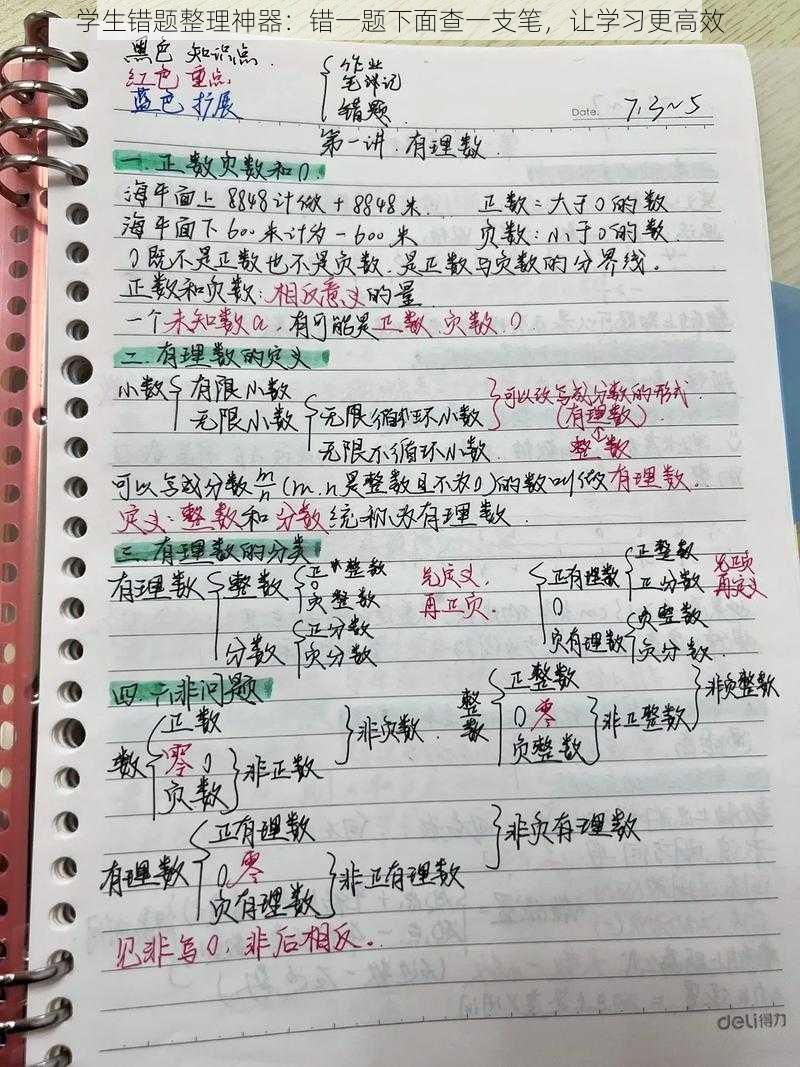 学生错题整理神器：错一题下面查一支笔，让学习更高效
黑色 知识点
红色 重点
蓝色 扩展
作业
笔记
错题
Date. 7.3~5
第一讲.有理数
一.正数负数和0.
海平面上8848计做+8848米. 正数：大于0的数
海平面下600米计为-600米 负数：小于0的数.
0既不是正数也不是负数.是正数与负数的分界线。
正数和负数：相反意义的量
一个未知数a,有可能是正数.负数.0
二.有理数的定义
小数 有限小数
无限小数 无限循环小数 可以改写成分数的形式.
(有理数)
无限不循环小数. 整数
可以写成分数m/n(m.n是整数且不为0)的数叫做有理数.
定义：整数和分数统称为有理数.
三.有理数的分类
有理数 整数 正整数 0 负整数
分数 正分数 负分数
先定义.
再正负.
正有理数 正整数 正分数
0
负有理数 负整数 负分数.
先正负
再定义
四.六非问题
数 正数 零0 负数 非正数 非负数.
整数 正整数 0零 负整数 非正整数 非负整数
有理数 正有理数 0零 负有理数 非正有理数 非负有理数
见非写0,非后相反。
deli得力